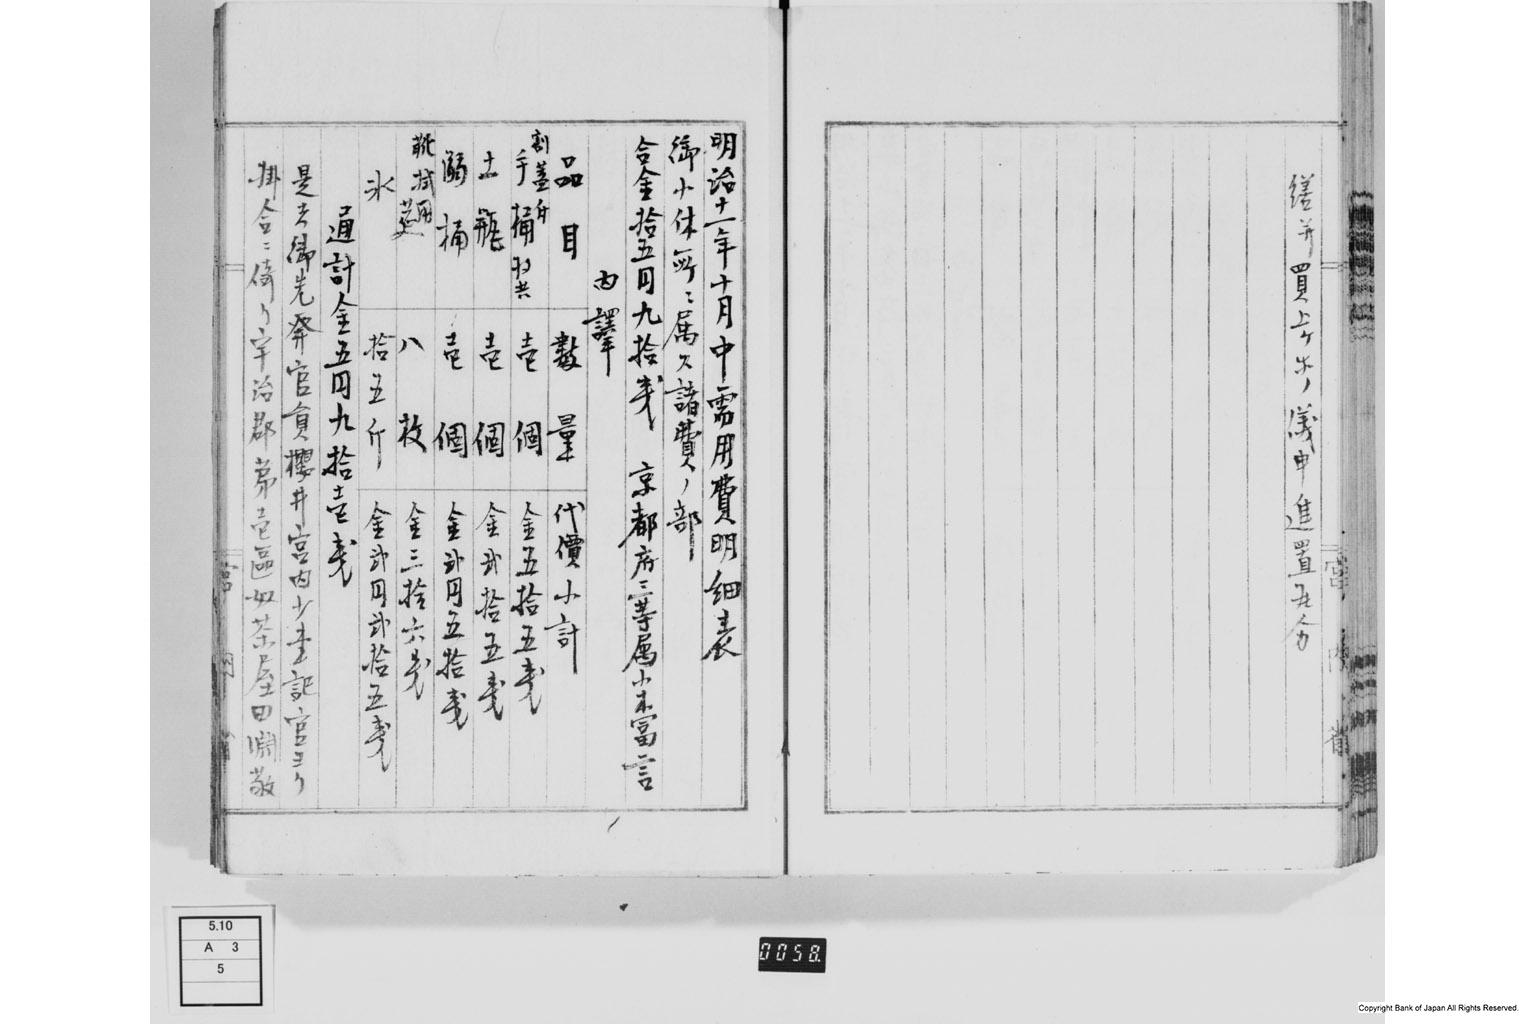 繕并買上ケホノ儀申進置候分
宮内省
明治十一年十月中需用費明細表
御小休所ニ属スル諸費ノ部
合金拾五円九拾銭 京都府三等属小木富言
内譯
品目 數量 代價小計
割蓋付
手桶 壱個 金五拾五銭
土瓶 壱個 金弐拾五銭
溺桶 壱個 金弐円五拾銭
靴拭用
莚 八枚 金三拾六銭
氷 拾五斤 金弐円弐拾五銭
通計金五円九拾壱銭
是者御先発官員櫻井宮内少書記官ヨリ
掛合ニ倚リ宇治郡第壱區奴茶屋田淵敬
宮内省
5.10
A 3
5
0058.
Copyright Bank of Japan All Rights Reserved.